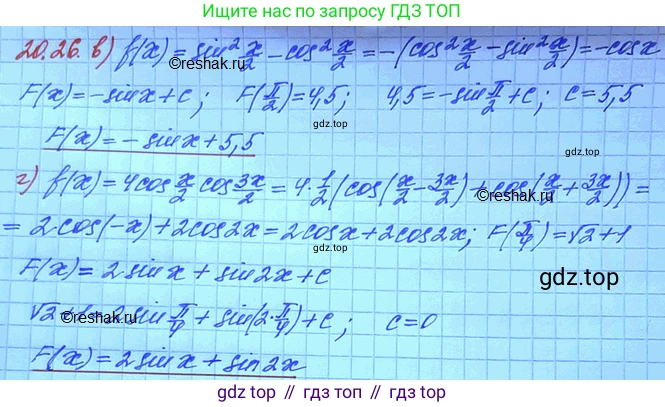 Ищите нас по запросу ГДЗ ТОП
20.26. в) f(x) = sin² x/2 - cos² x/2 = -(cos² x/2 - sin² x/2) = -cosx
©reshak.ru
F(x) = -sinx + c; F(π/2) = 4,5; 4,5 = -sin π/2 + c; c = 5,5
gdz.top
F(x) = -sinx + 5,5
г) f(x) = 4cos x/2 cos 3x/2 = 4·1/2 (cos(x/2 - 3x/2) + cos(x/2 + 3x/2)) =
©reshak.ru
= 2·cos(-x) + 2cos2x = 2cosx + 2cos2x; F(π/4) = √2 + 1
F(x) = 2sinx + sin2x + c
gdz.top
√2 sin π/4 + sin(2·π/4) + c; c = 0
©reshak.ru
F(x) = 2sinx + sin2x
gdz.top
gdz.top // гдз.топ // гдз.top